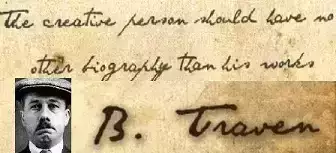 the creative person should have no
other biography than his works
B. Traven